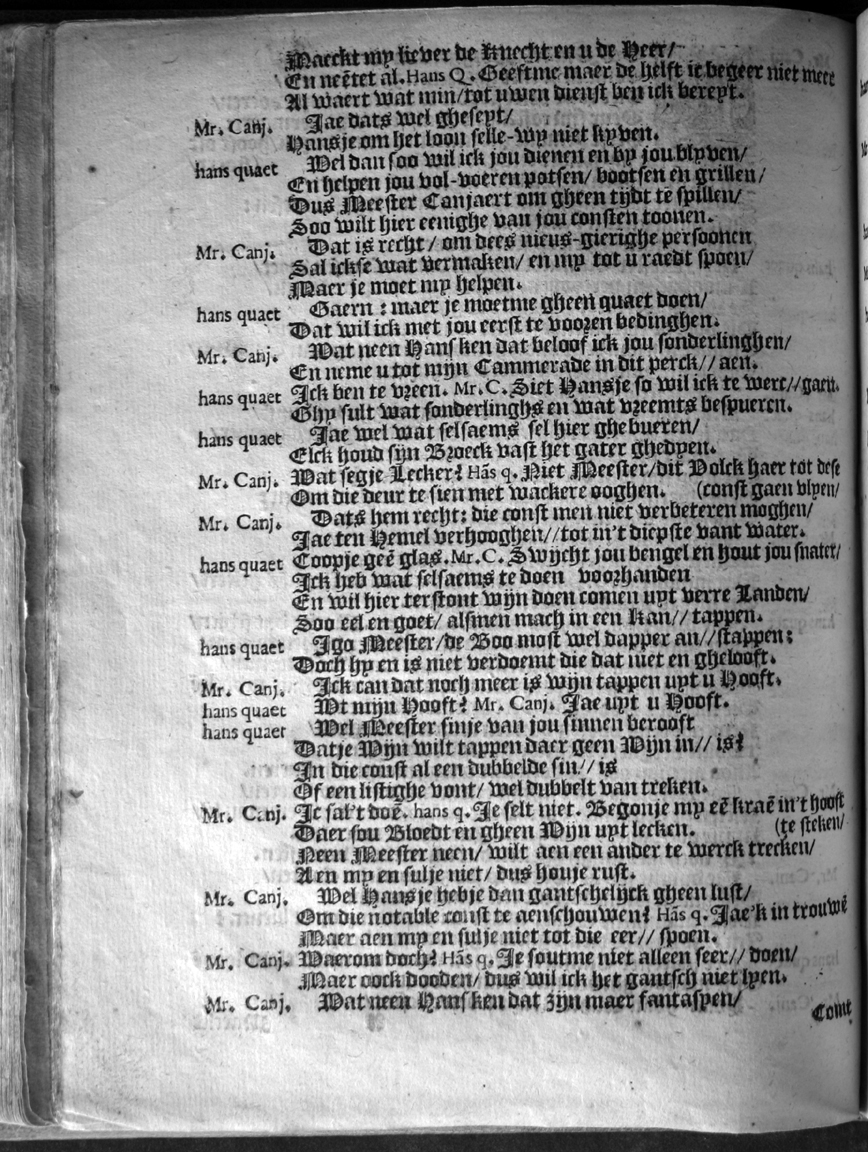 Maeckt my liever de Knecht en u de Heer/
En neētet al. Hans Q. Geeftme maer de helft ic begeer niet meer
Al waert wat min/tot uwen dienst ben ick bereyt.
Mr. Canj. Jae dats wel gheseyt/
Hansje om het loon selle-wy niet kyven.
hans quaet Wel dan soo wil ick jou dienen en by jou blyven/
En helpen jou vol-voeren potsen/ bootsen en grillen/
Dus Meester Canjaert om gheen tijdt te spillen/
Soo wilt hier eenighe van jou consten toonen.
Mr. Canj. Dat is recht/ om dees nieus-gierighe persoonen
Sal ickse wat vermaken/ en my tot u raedt spoen/
Maer je moet my helpen.
hans quaet Gaern : maer je moetme gheen quaet doen/
Dat wil ick met jou eerst te voozen bedinghen.
Mr. Canj. Wat neen Hansken dat beloof ick jou sonderlinghen/
En neme u tot mijn Cammerade in dit perck// aen.
hans quaet Ick ben te vreen. Mr. C. Siet Hansje so wil ick te werc//gaen.
Ghy sult wat sonderlinghs en wat vreemts bespueren.
hans quaet Jae wel wat selsaems sel hier ghebueren/
Elck houd sijn Broeck vast het gater ghedyen.
Mr. Canj. Wat segje Lecker? Hās q. Niet Meester/dit Volck haer tot dese
Om die deur te sien met wackere ooghen. (const gaen vlyen/
Mr. Canj. Dats hem recht: die const men niet verbeteren moghen/
Jae ten Hemel verhooghen//tot in't diepste vant water.
hans quaet Coopje geē glas. Mr. C. Swijcht jou bengel en hout jou snater/
Ick heb wat selsaems te doen voorhanden
En wil hier terstont wijn doen comen uyt verre Landen/
Soo eel en goet/ alsmen mach in een Kan// tappen.
hans quaet Jgo Meester/de Boo most wel dapper an//stappen:
Doch hy en is niet verdoemt die dat niet en ghelooft.
Mr. Canj. Ick can dat noch meer is wijn tappen uyt u Hooft.
hans quaet Wt mijn Hooft? Mr. Canj. Jae uyt u Hooft.
hans quaet Wel Meester sinje van jou sinnen berooft
Datje Wijn wilt tappen daer geen Wijn in// is?
In die const al een dubbelde sin// is
Of een listighe vont/ wel dubbelt van treken.
Mr. Canj. Ic sal't doē. hans q. Je selt niet. Begonje my eē kraē in't hooft
Daer sou Bloedt en gheen Wijn uyt lecken. (te steken/
Neen Meester neen/ wilt aen een ander te werck trecken/
Aen my en sulje niet/ dus houje rust.
Mr. Canj. Wel Hansje hebje dan gantschelijck gheen lust/
Om die notable const te aenschouwen? Hās q. Jae'k in trouwē
Maer aen my en sulje niet tot die eer// spoen.
Mr. Canj. Waerom doch? Hās q. Je soutme niet alleen seer// doen/
Maer oock dooden/ dus wil ick het gantsch niet lyen.
Mr. Canj. Wat neen Hansken dat zijn maer fantasyen/
Comt